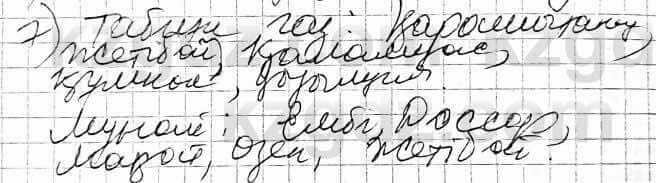 7) Табиғи газ: Қарашығанақ,
Жетібай, Қаламқас,
Құмкөл, Қызылқия.
Мұнай: Ембі, Доссор,
Мақат, Өзен, Жетібай.